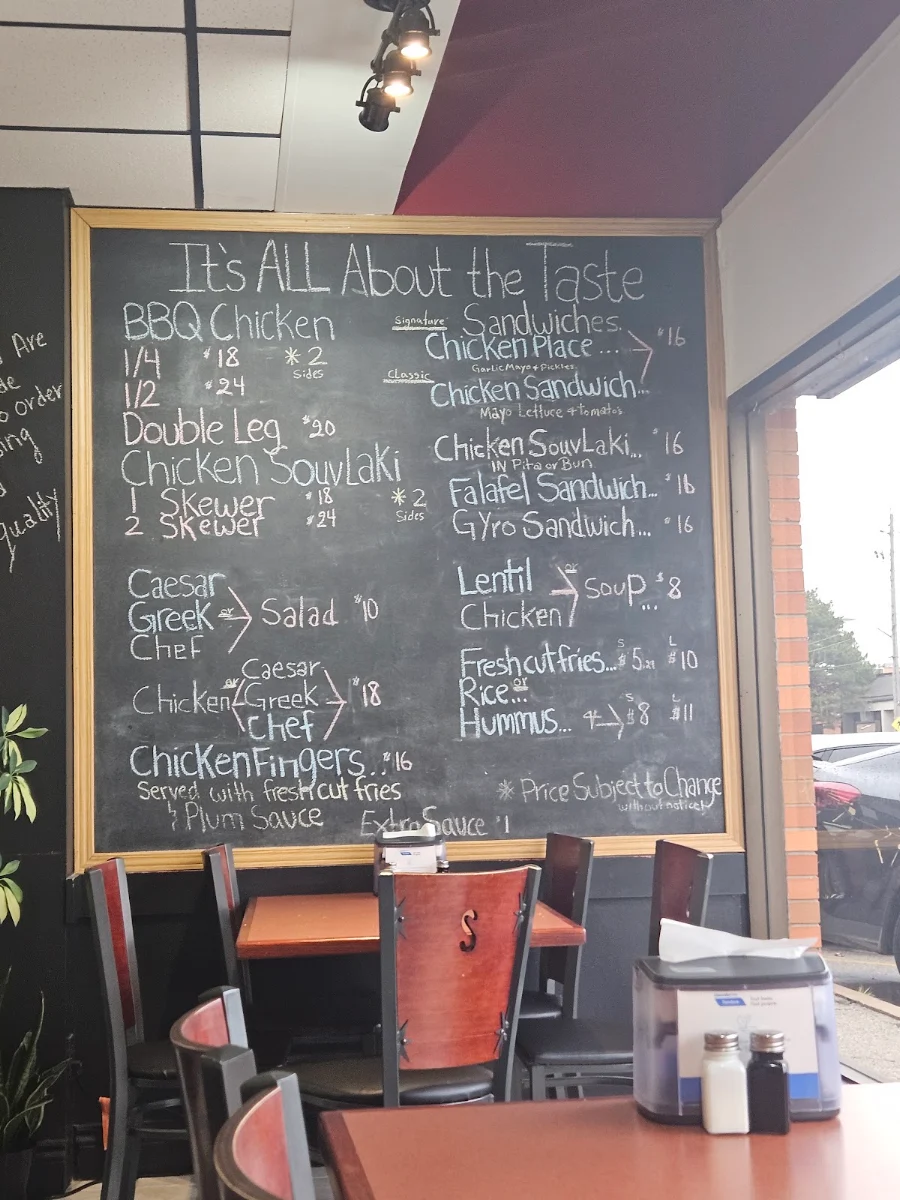 It's ALL About the Taste
BBQ Chicken
1/4 $18 * 2
1/2 $24 Sides
Double Leg $20
Chicken SouvLaki
1 Skewer $18 * 2
2 Skewer $24 Sides
Caesar
Greek or Salad $10
Chef
Caesar
Chicken or Greek $18
Chef
Chicken Fingers.. $16
Served with fresh cut fries
& Plum Sauce Extra Sauce $1
Signature Sandwiches.
Chicken Place ... $16
Garlic Mayo + Pickles
Classic
Chicken Sandwich...
Mayo Lettuce + Tomato's
Chicken SouvLaki... $16
IN Pita or Bun
Falafel Sandwich... $16
GYro Sandwich... $16
Lentil
or Soup... $8
Chicken
S L
Fresh cut fries... $5 $10
Rice or...
S L
Hummus... $8 $11
* Price Subject to Change
without notice!
Are
order
quality
S